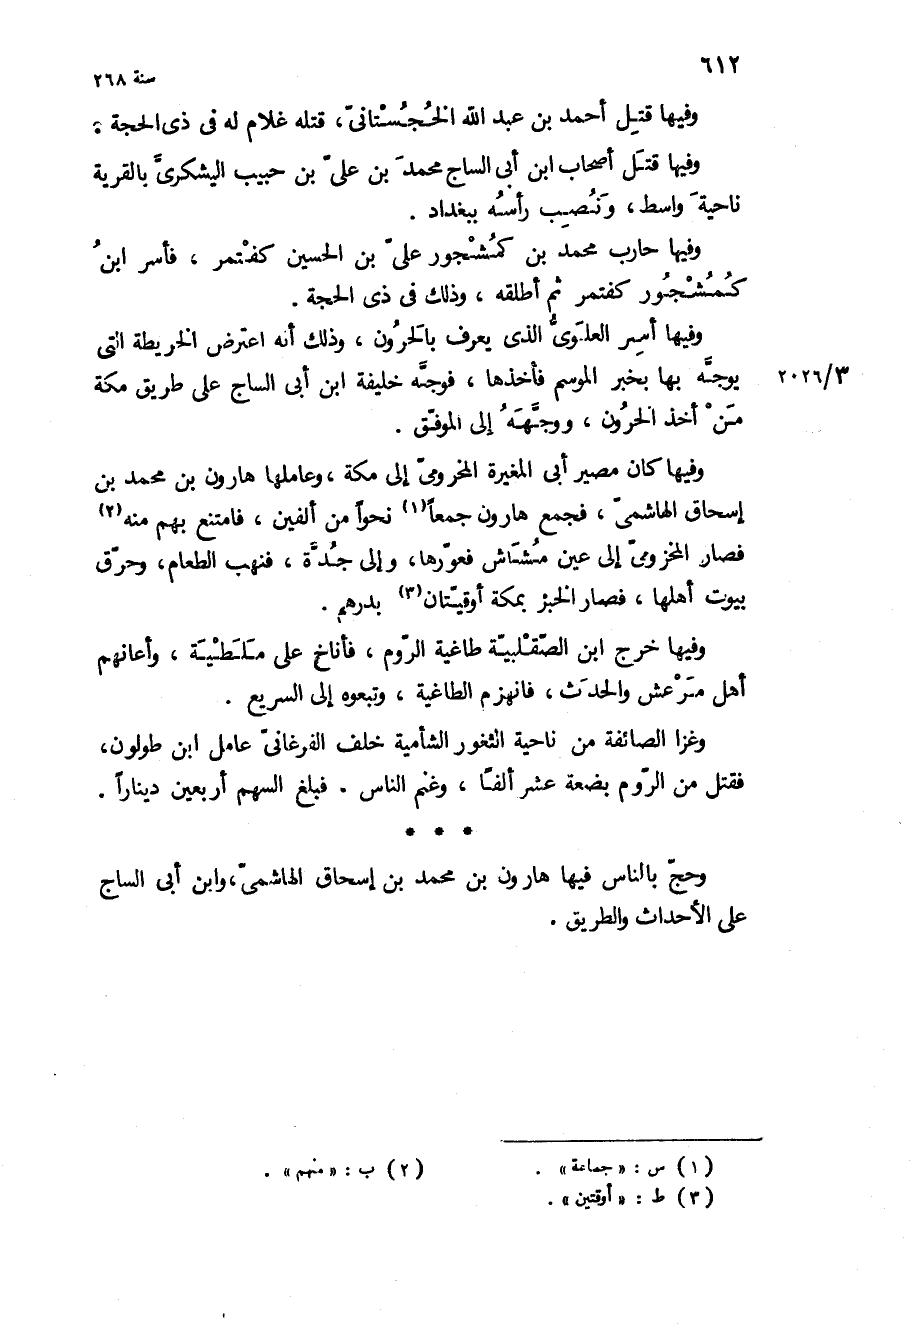 ٦١٢
سنة ٢٦٨
وفيها قتِل أحمد بن عبد الله الخُجُسْتانىّ، قتله غلام له فى ذى الحجة .
وفيها قتَل أصحاب ابن أبى الساج محمدَ بن علىّ بن حبيب اليشكرىَّ بالقرية
ناحيةَ واسط، ونُصِب رأسُه ببغداد .
وفيها حارب محمد بن كُمُشْجور علىّ بن الحسين كفتمر ، فأسر ابنُ
كُمُشْجُور كفتمر ثم أطلقه ، وذلك فى ذى الحجة .
وفيها أسِر العلَوىُّ الذى يعرف بالحَرُون ، وذلك أنه اعترض الخريطة التى
يوجَّه بها بخبر الموسم فأخذها ، فوجَّه خليفة ابن أبى الساج على طريق مكة
٢٠٢٦/٣
مَنْ أخذ الحرُون ، ووجَّهَهُ إلى الموفّق .
وفيها كان مصير أبى المغيرة المخزومىّ إلى مكة ، وعاملها هارون بن محمد بن
إسحاق الهاشمىّ ، فجمع هارون جمعاً(١) نحواً من ألفين ، فامتنع بهم منه(٢)
فصار المخزومىّ إلى عين مُشَاش فعوّرها، وإلى جُدَّة ، فنهب الطعام، وحرّق
بيوت أهلها ، فصار الخبز بمكة أوقيّتان(٣) بدرهم .
وفيها خرج ابن الصّقْلبيّة طاغية الرّوم ، فأناخ على مَلَطْيَة ، وأعانهم
أهل مَرْعش والحدَث ، فانهزم الطاغية ، وتبعوه إلى السريع .
وغزا الصائفة من ناحية الثغور الشأمية خلف الفرغانىّ عامل ابن طولون،
فقتل من الرّوم بضعة عشر ألفًا ، وغنم الناس . فبلغ السهم أربعين ديناراً .
* * *
وحجّ بالناس فيها هارون بن محمد بن إسحاق الهاشمىّ، وابن أبى الساج
على الأحداث والطريق .
(١) س : « جماعة » .
(٢) ب : « منهم » .
(٣) ط : « أوقتين » .